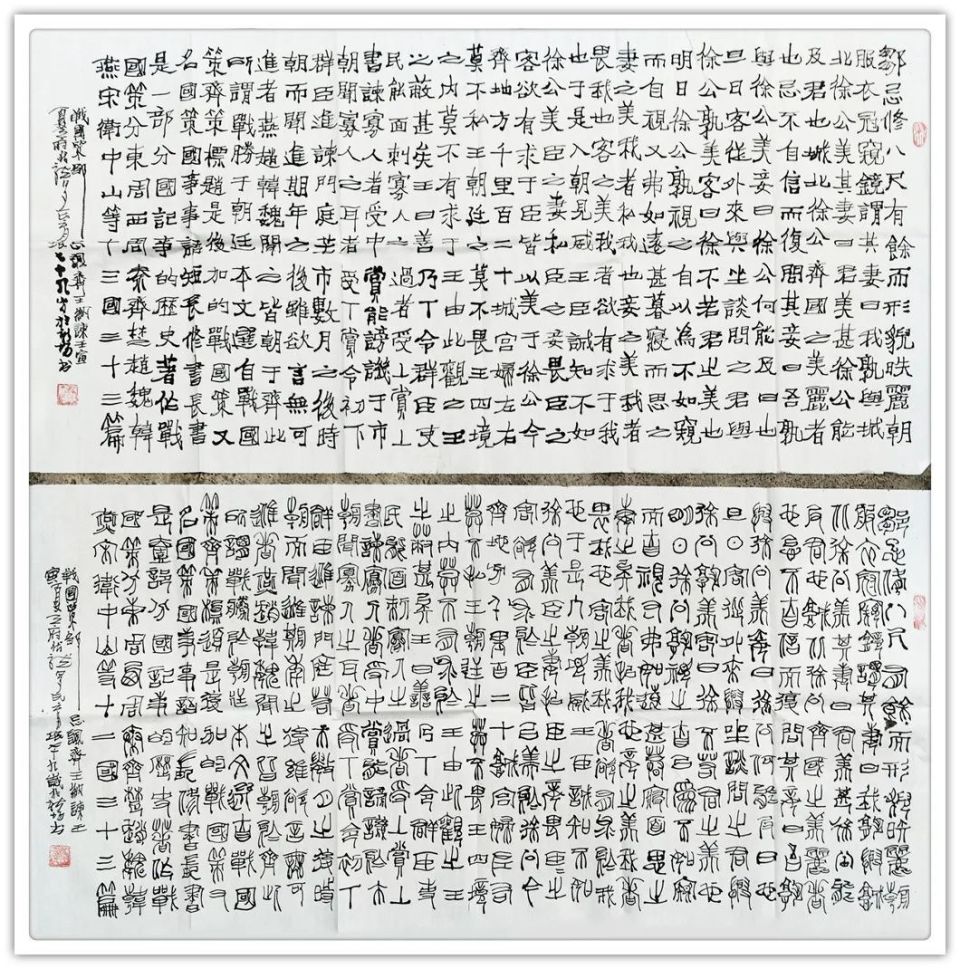 鄒忌修八尺有餘而形貌昳麗朝
服衣冠窺鏡謂其妻曰我孰與城
北徐公美其妻曰君美甚徐公能
及君也城北徐公齊國之美麗者
也忌不自信而復問其妾曰吾孰
與徐公美妾曰徐公何能及曰也
旦日客從外來與坐談問之君與
徐公孰美客曰徐不若君之美也
明日徐公孰視之自以為不如窺
而自視又弗如遠甚暮寢而思之
妻之美我者私我也妾之美我者
畏我也客之美我者欲有求于我
也于是入朝見威王臣誠知不如
徐公美臣之妻私臣臣之妾畏臣
客欲有求于臣皆以美于徐公今
齊地方千里百二十城宮婦左右
莫不私王朝廷之莫不畏王四境
之内莫不有求于王由此觀之王
之蔽甚矣王曰善乃丁令群臣吏
民能面刺寡人之過者受上賞上
書諫寡人者受中賞能謗譏于市
朝聞寡人之耳者受丁賞令初下
群臣進諫門庭若市數月之後時
朝而聞進期年之後雖欲言無可
進者燕趙韓魏聞之皆朝于齊此
所謂戰勝于朝廷本文選自戰國
策齊策標題是後加的戰國策又
名國策國事事語短長修書長書
是一部分國記事的歷史著作戰
國策分東周西周秦齊楚趙魏韓
燕宋衛中山等十三國三十三篇
戰國策鄒忌諷齊王納諫壬寅
鄒忌修八尺有餘而形貌昳麗朝
服衣冠窺鏡謂其妻曰我孰與城
北徐公美其妻曰君美甚徐公能
及君也城北徐公齊國之美麗者
也忌不自信而復問其妾曰吾孰
與徐公美妾曰徐公何能及曰也
旦日客從外來與坐談問之君與
徐公孰美客曰徐不若君之美也
明日徐公孰視之自以為不如窺
而自視又弗如遠甚暮寢而思之
妻之美我者私我也妾之美我者
畏我也客之美我者欲有求于我
也于是入朝見威王臣誠知不如
徐公美臣之妻私臣臣之妾畏臣
客欲有求于臣皆以美于徐公今
齊地方千里百二十城宮婦左右
莫不私王朝廷之莫不畏王四境
之内莫不有求于王由此觀之王
之蔽甚矣王曰善乃丁令群臣吏
民能面刺寡人之過者受上賞上
書諫寡人者受中賞能謗譏于市
朝聞寡人之耳者受丁賞令初丁
群臣進諫門庭若市數月之後時
朝而聞進期年之後雖欲言無可
進者燕趙韓魏聞之皆朝于齊此
所謂戰勝于朝廷本文選自戰國
策齊策標題是後加的戰國策又
名國策國事事語短長修書長書
是一部分國記事的歷史著作戰
國策分東周西周秦齊楚趙魏韓
燕宋衛中山等十二國三十三篇
戰國策鄒忌諷齊王納諫壬